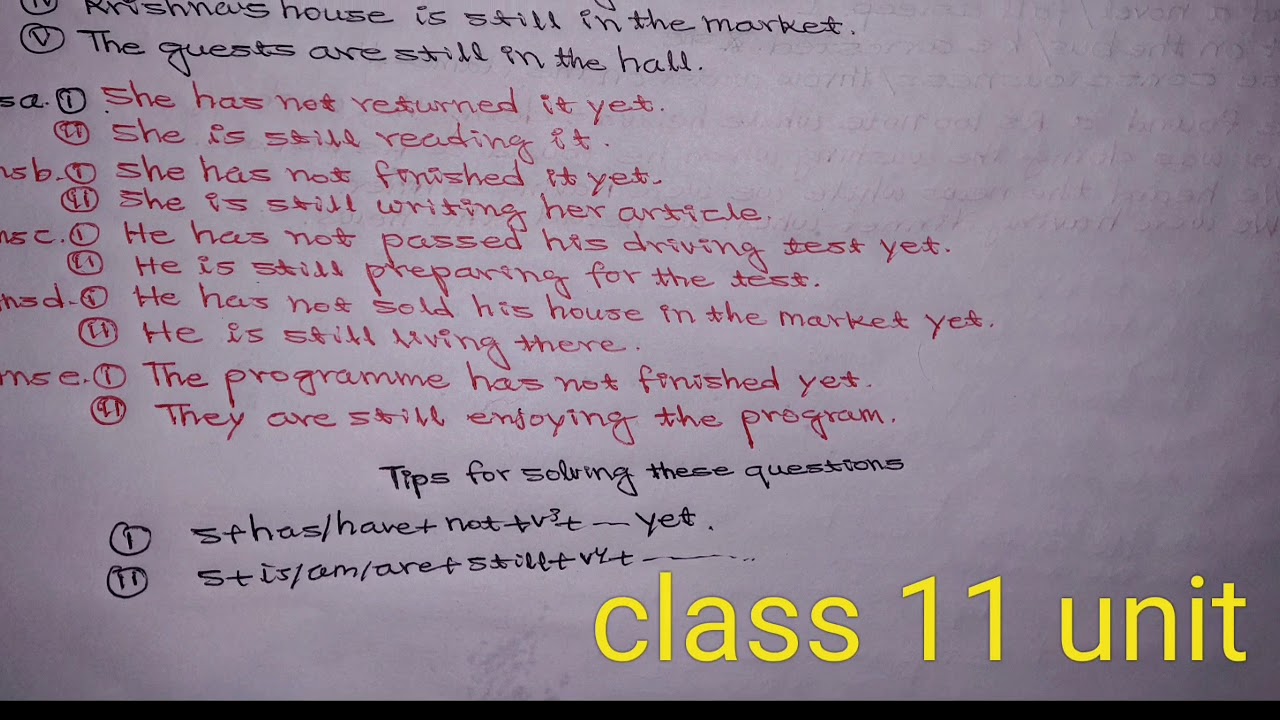 iv Krishna's house is still in the market.
v The guests are still in the hall.
sa. i She has not returned it yet.
ii She is still reading it.
nsb. i She has not finished it yet.
ii She is still writing her article.
nsc. i He has not passed his driving test yet.
ii He is still preparing for the test.
nsd. i He has not sold his house in the market yet.
ii He is still living there.
nse. i The programme has not finished yet.
ii They are still enjoying the program.
Tips for solving these questions
i s+has/have+ not+v³+ — yet.
ii s+is/am/are+still+v⁴+ ———...
class 11 unit